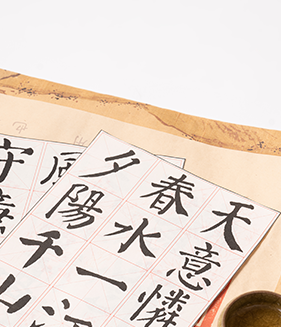 天意憐
春水一
夕陽千山
風
守